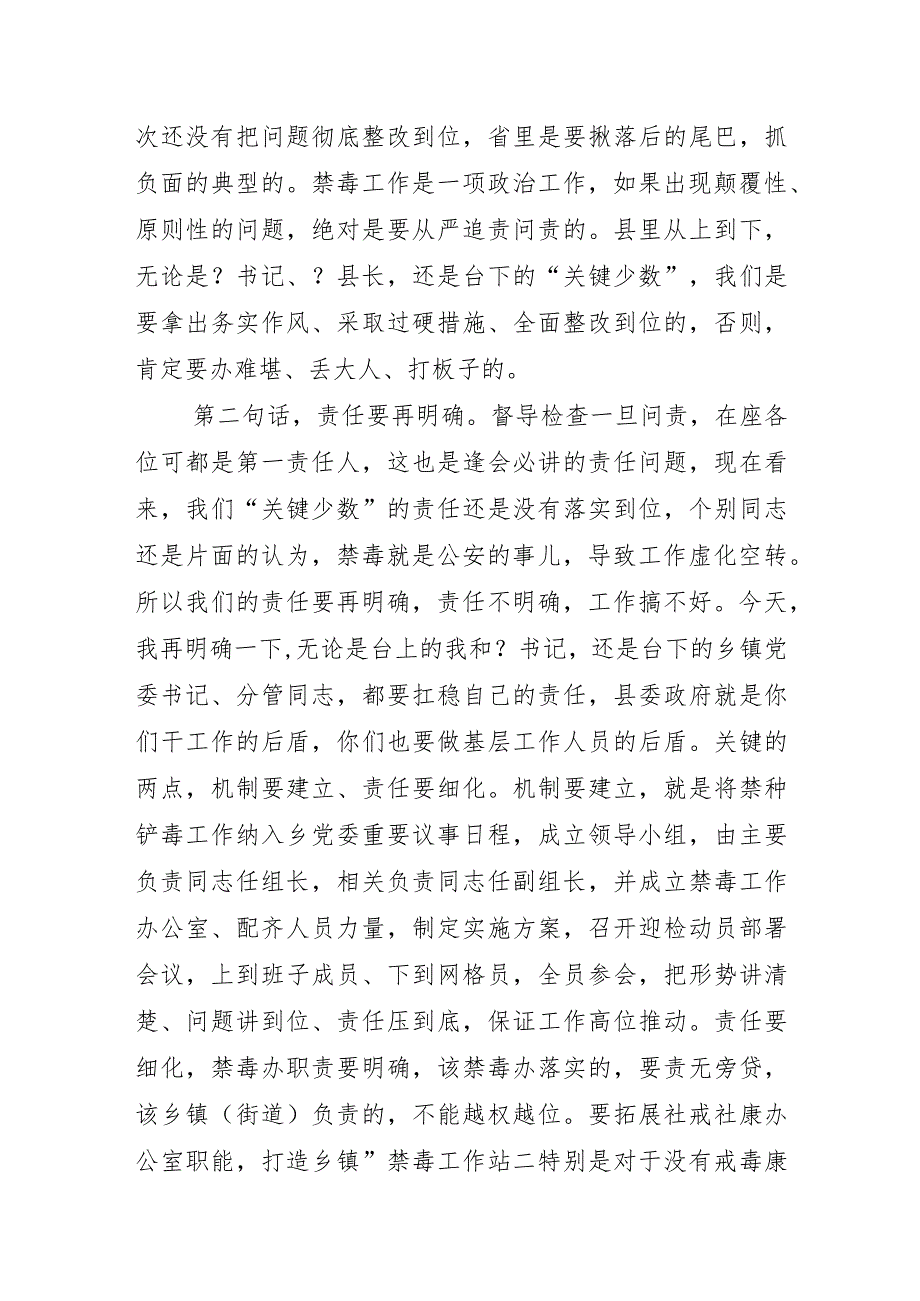 次还没有把问题彻底整改到位，省里是要揪落后的尾巴，抓
负面的典型的。禁毒工作是一项政治工作，如果出现颠覆性、
原则性的问题，绝对是要从严追责问责的。县里从上到下，
无论是？书记、？县长，还是台下的“关键少数”，我们是
要拿出务实作风、采取过硬措施、全面整改到位的，否则，
肯定要办难堪、丢大人、打板子的。
第二句话，责任要再明确。督导检查一旦问责，在座各
位可都是第一责任人，这也是逢会必讲的责任问题，现在看
来，我们“关键少数”的责任还是没有落实到位，个别同志
还是片面的认为，禁毒就是公安的事儿，导致工作虚化空转。
所以我们的责任要再明确，责任不明确，工作搞不好。今天，
我再明确一下,无论是台上的我和？书记，还是台下的乡镇党
委书记、分管同志，都要扛稳自己的责任，县委政府就是你
们干工作的后盾，你们也要做基层工作人员的后盾。关键的
两点，机制要建立、责任要细化。机制要建立，就是将禁种
铲毒工作纳入乡党委重要议事日程，成立领导小组，由主要
负责同志任组长，相关负责同志任副组长，并成立禁毒工作
办公室、配齐人员力量，制定实施方案，召开迎检动员部署
会议，上到班子成员、下到网格员，全员参会，把形势讲清
楚、问题讲到位、责任压到底，保证工作高位推动。责任要
细化，禁毒办职责要明确，该禁毒办落实的，要责无旁贷，
该乡镇（街道）负责的，不能越权越位。要拓展社戒社康办
公室职能，打造乡镇”禁毒工作站二特别是对于没有戒毒康